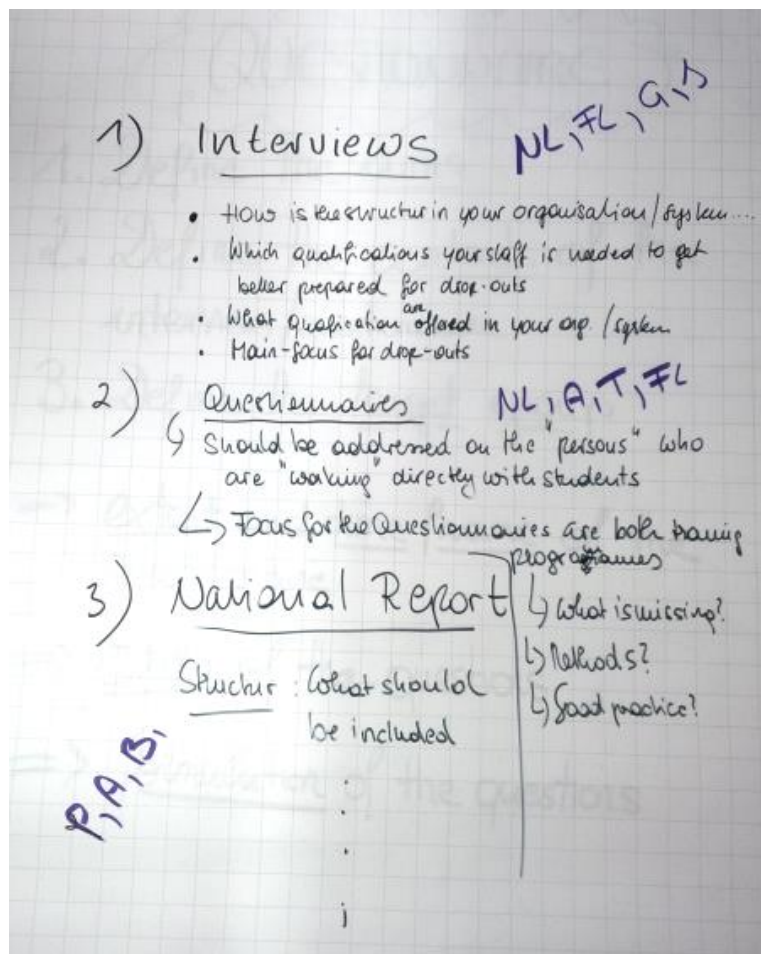 1) Interviews NL, FL, G, S
• How is the structur in your organisation/system....
• Which qualifications your staff is needed to get
better prepared for drop-outs
• What qualification are offered in your org. /system
• Main-focus for drop-outs
2) Questionnaires NL, A, T, FL
↳ Should be addressed on the "persons" who
are "working" directly with students
↳ Focus for the Questionnaires are both training
programmes
↳ What is missing?
↳ Methods?
↳ Good practice?
3) National Report
Structur: What should
be included
P, A, B,